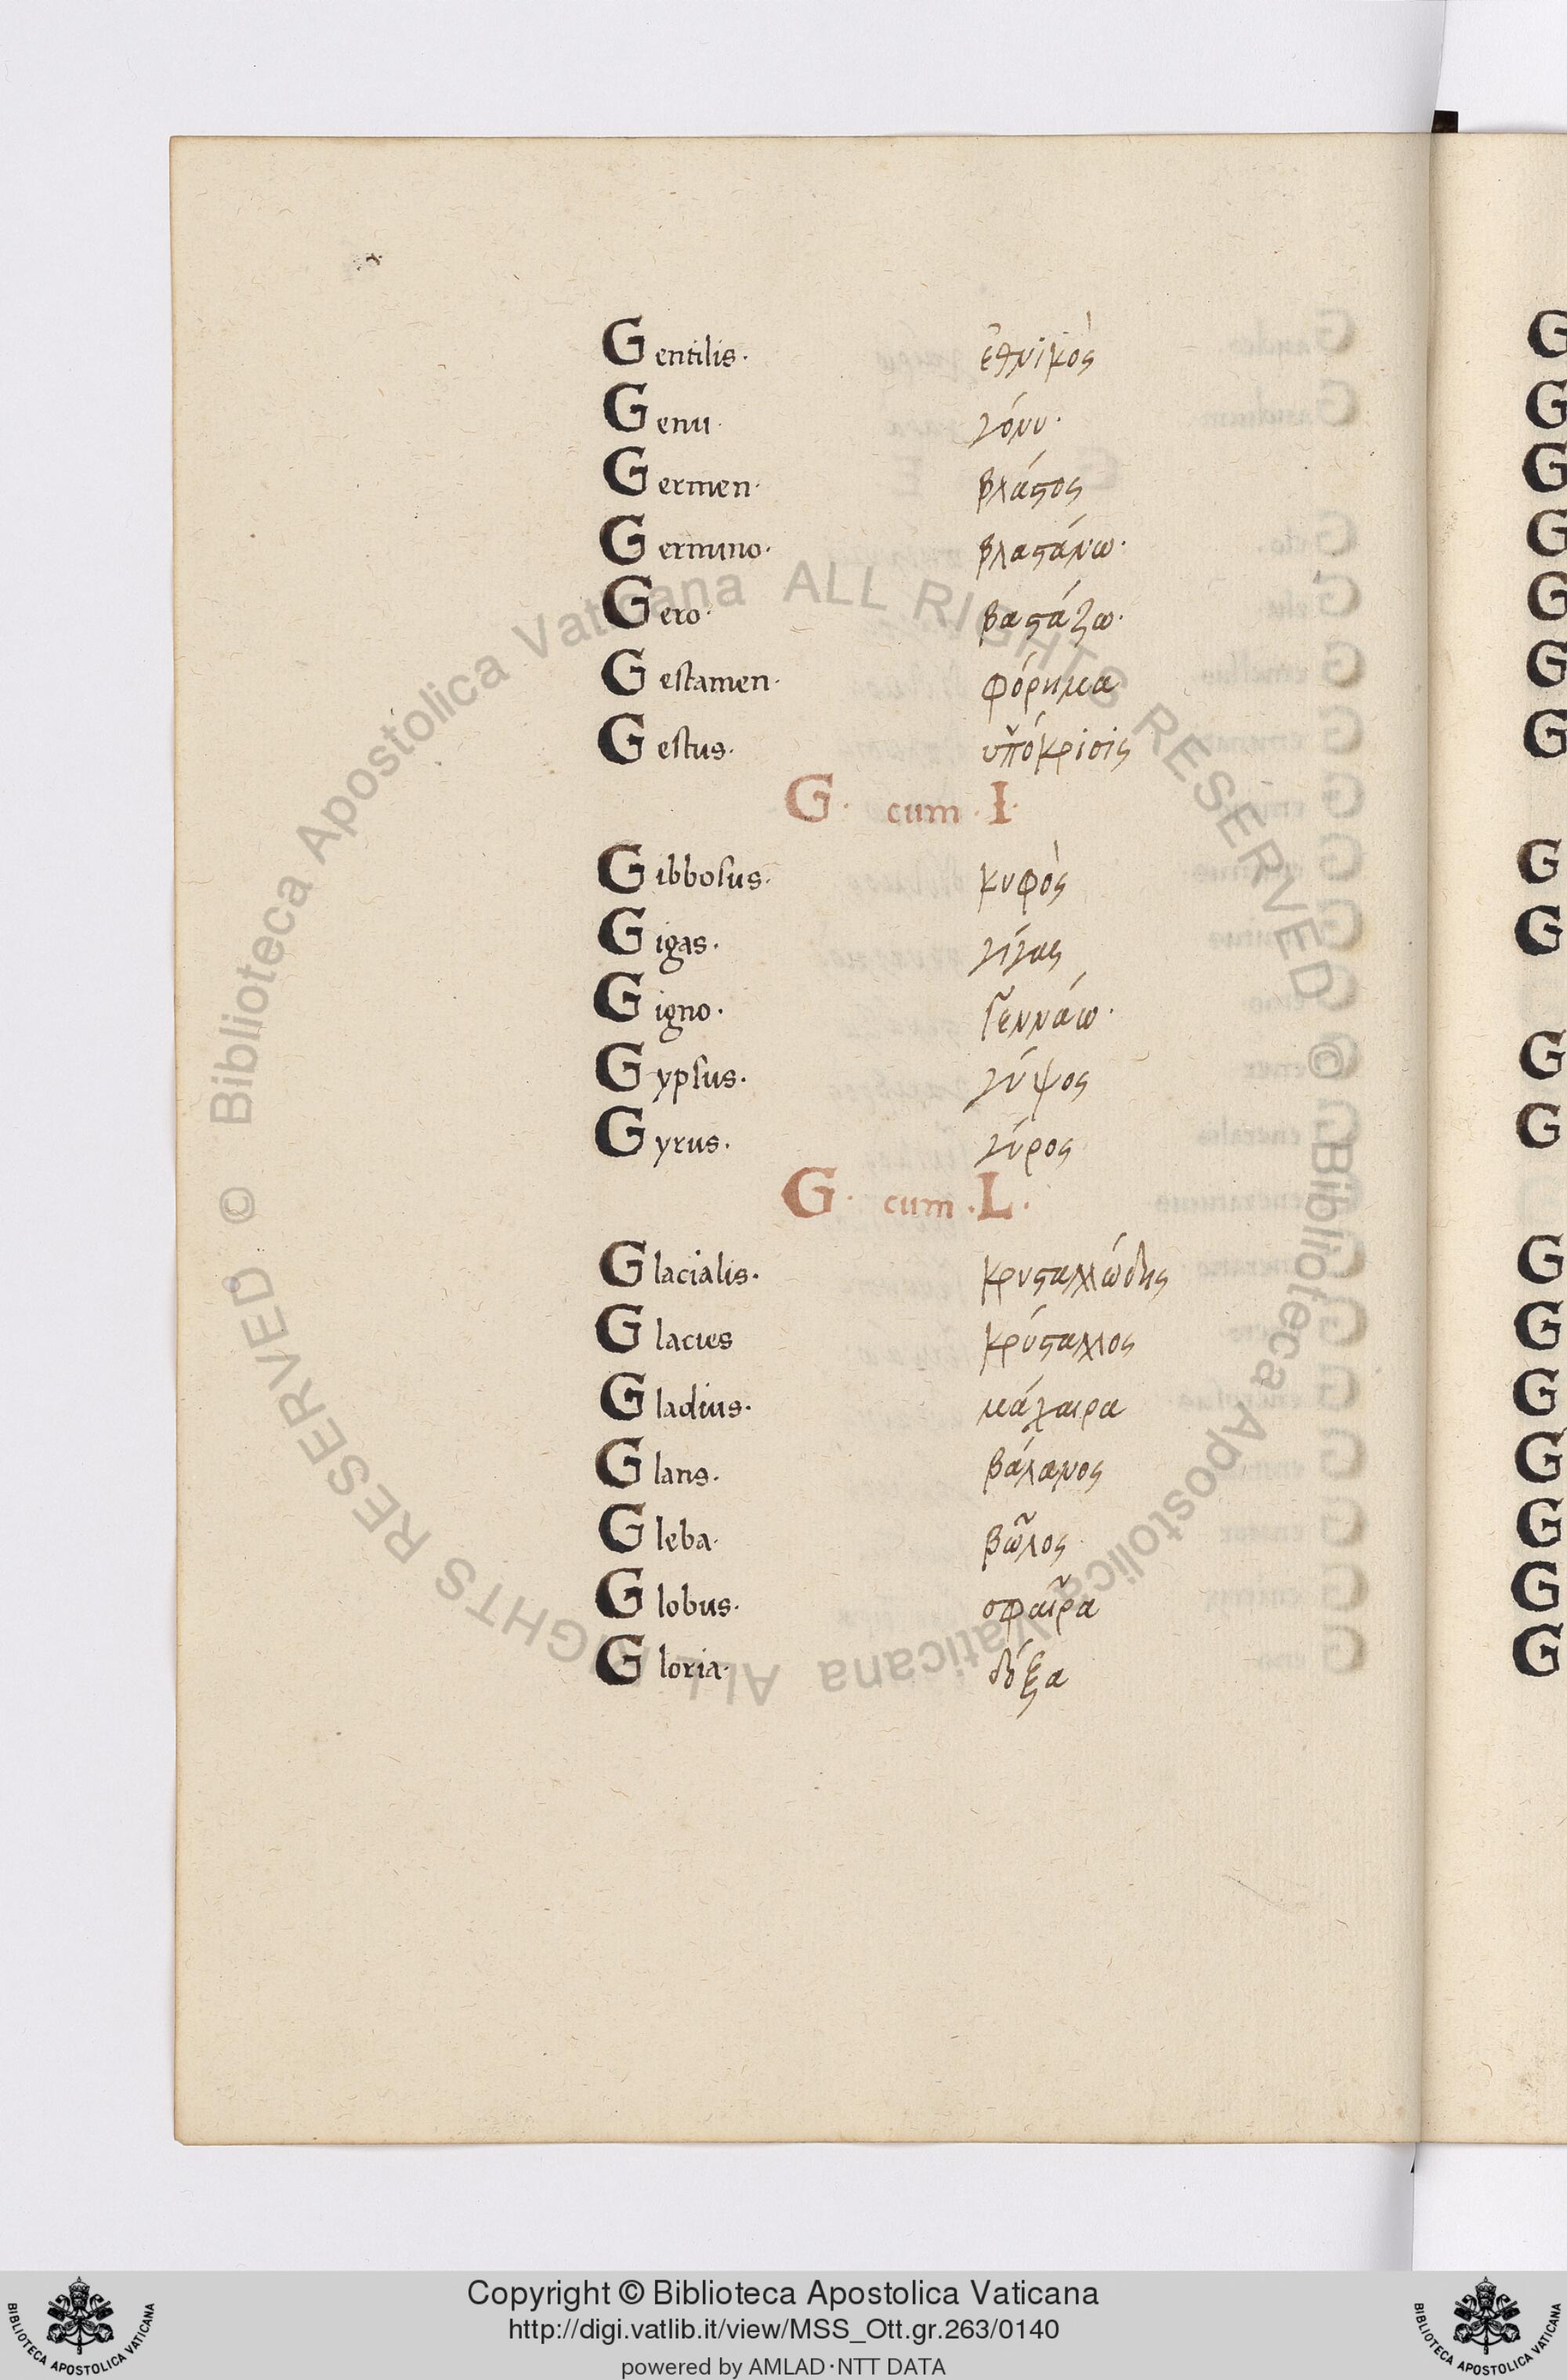 Gentilis· ἐθνικὸς
Genu· γόνυ·
Germen· βλάϛος
Germino· βλαϛάνω·
Gero· βαϛάζω·
Gestamen· φόρημα
Gestus· ὑπόκρισις
G· cum · I·
Gibbosus· κυφὸς
Gigas· γίγας
Gigno· γεννάω·
Gypsus· γύψος
Gyrus· γύρος
G· cum · L·
Glacialis· κρυϛαλλώδης
Glacies κρύϛαλλος
Gladius· μάχαιρα
Glans· βάλανος
Gleba· βῶλος
Globus· σφαῖρα
Gloria· δόξα
© Biblioteca Apostolica Vaticana ALL RIGHTS RESERVED
© Biblioteca Apostolica Vaticana ALL RIGHTS RESERVED
Copyright © Biblioteca Apostolica Vaticana
http://digi.vatlib.it/view/MSS_Ott.gr.263/0140
powered by AMLAD·NTT DATA
BIBLIOTECA APOSTOLICA VATICANA
BIBLIOTECA APOSTOLICA VATICANA